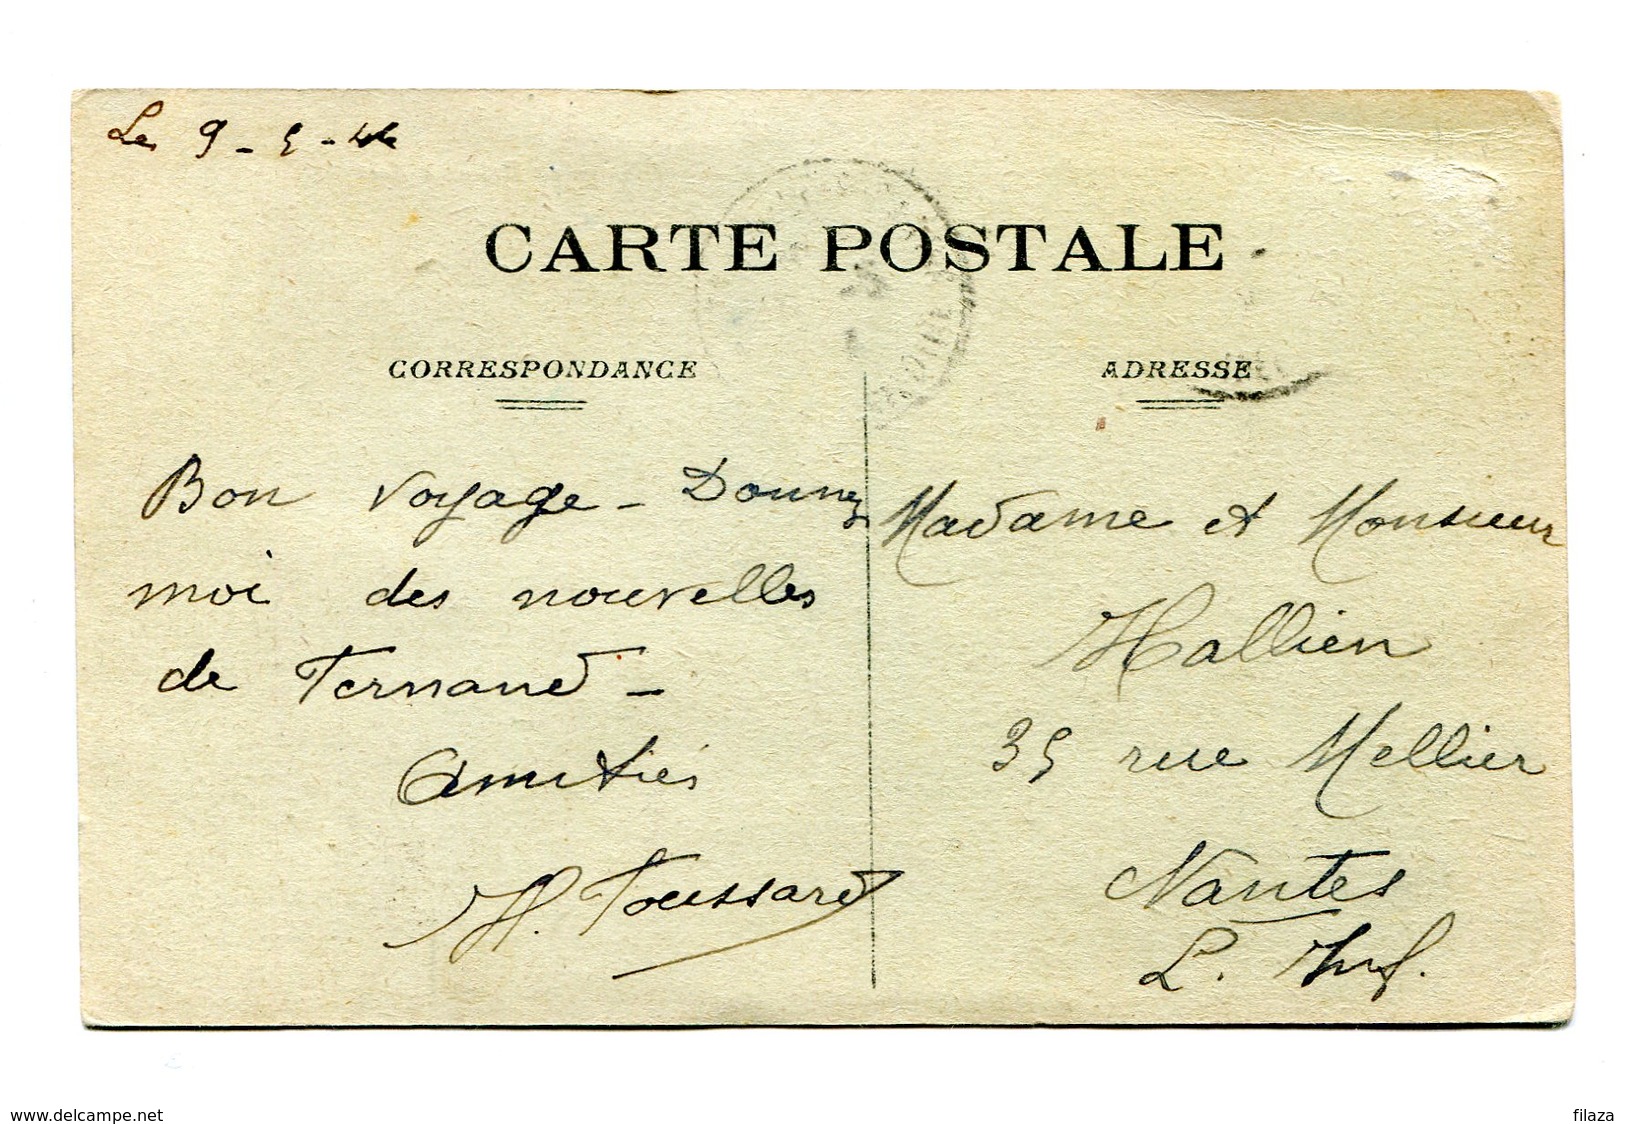 Le 9 - 5 - 44
CARTE POSTALE
CORRESPONDANCE
Bon voyage - Donnez
moi des nouvelles
de Fernand -
Amitiés
H. Toussard
ADRESSE
Madame et Monsieur
Hallien
35 rue Mellier
Nantes
L. Inf.
www.delcampe.net
filaza